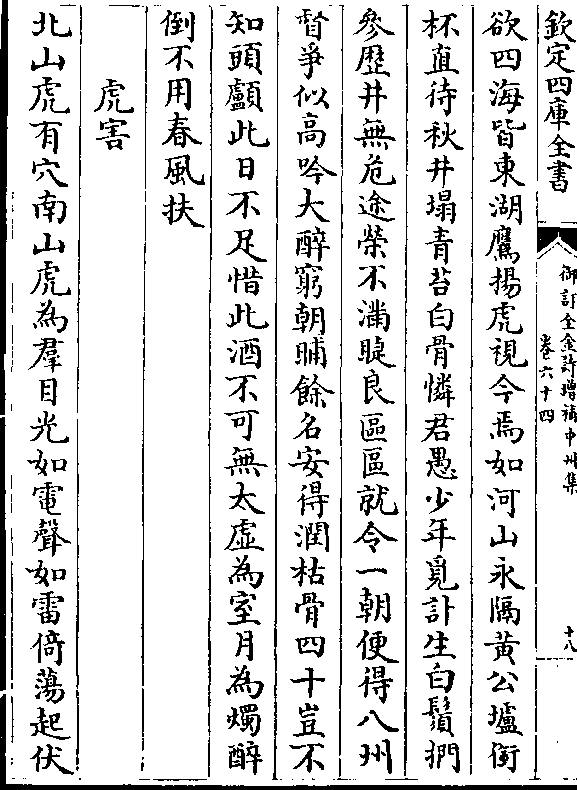 欽定四庫全書
御訂全金詩增補中州集
卷六十四
十八
欲四海皆東湖鷹揚虎視今焉如河山永隔黃公壚銜
杯直待秋井塌青苔白骨憐君愚少年覓計生白鬚捫
參歷井無危途榮不滿睫良區區就令一朝便得八州
督爭似高吟大醉窮朝晡餘名安得潤枯骨四十豈不
知頭顱此日不足惜此酒不可無太虛為室月為燭醉
倒不用春風扶
虎害
北山虎有穴南山虎為羣目光如電聲如雷倚蕩起伏